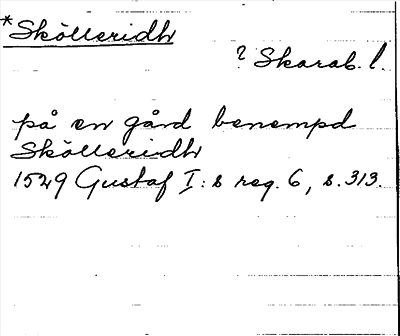 *Skölleridh
? Skarab. l.
på en gård benempd
Skölleridh
1529 Gustaf I:s reg. 6, s. 313.